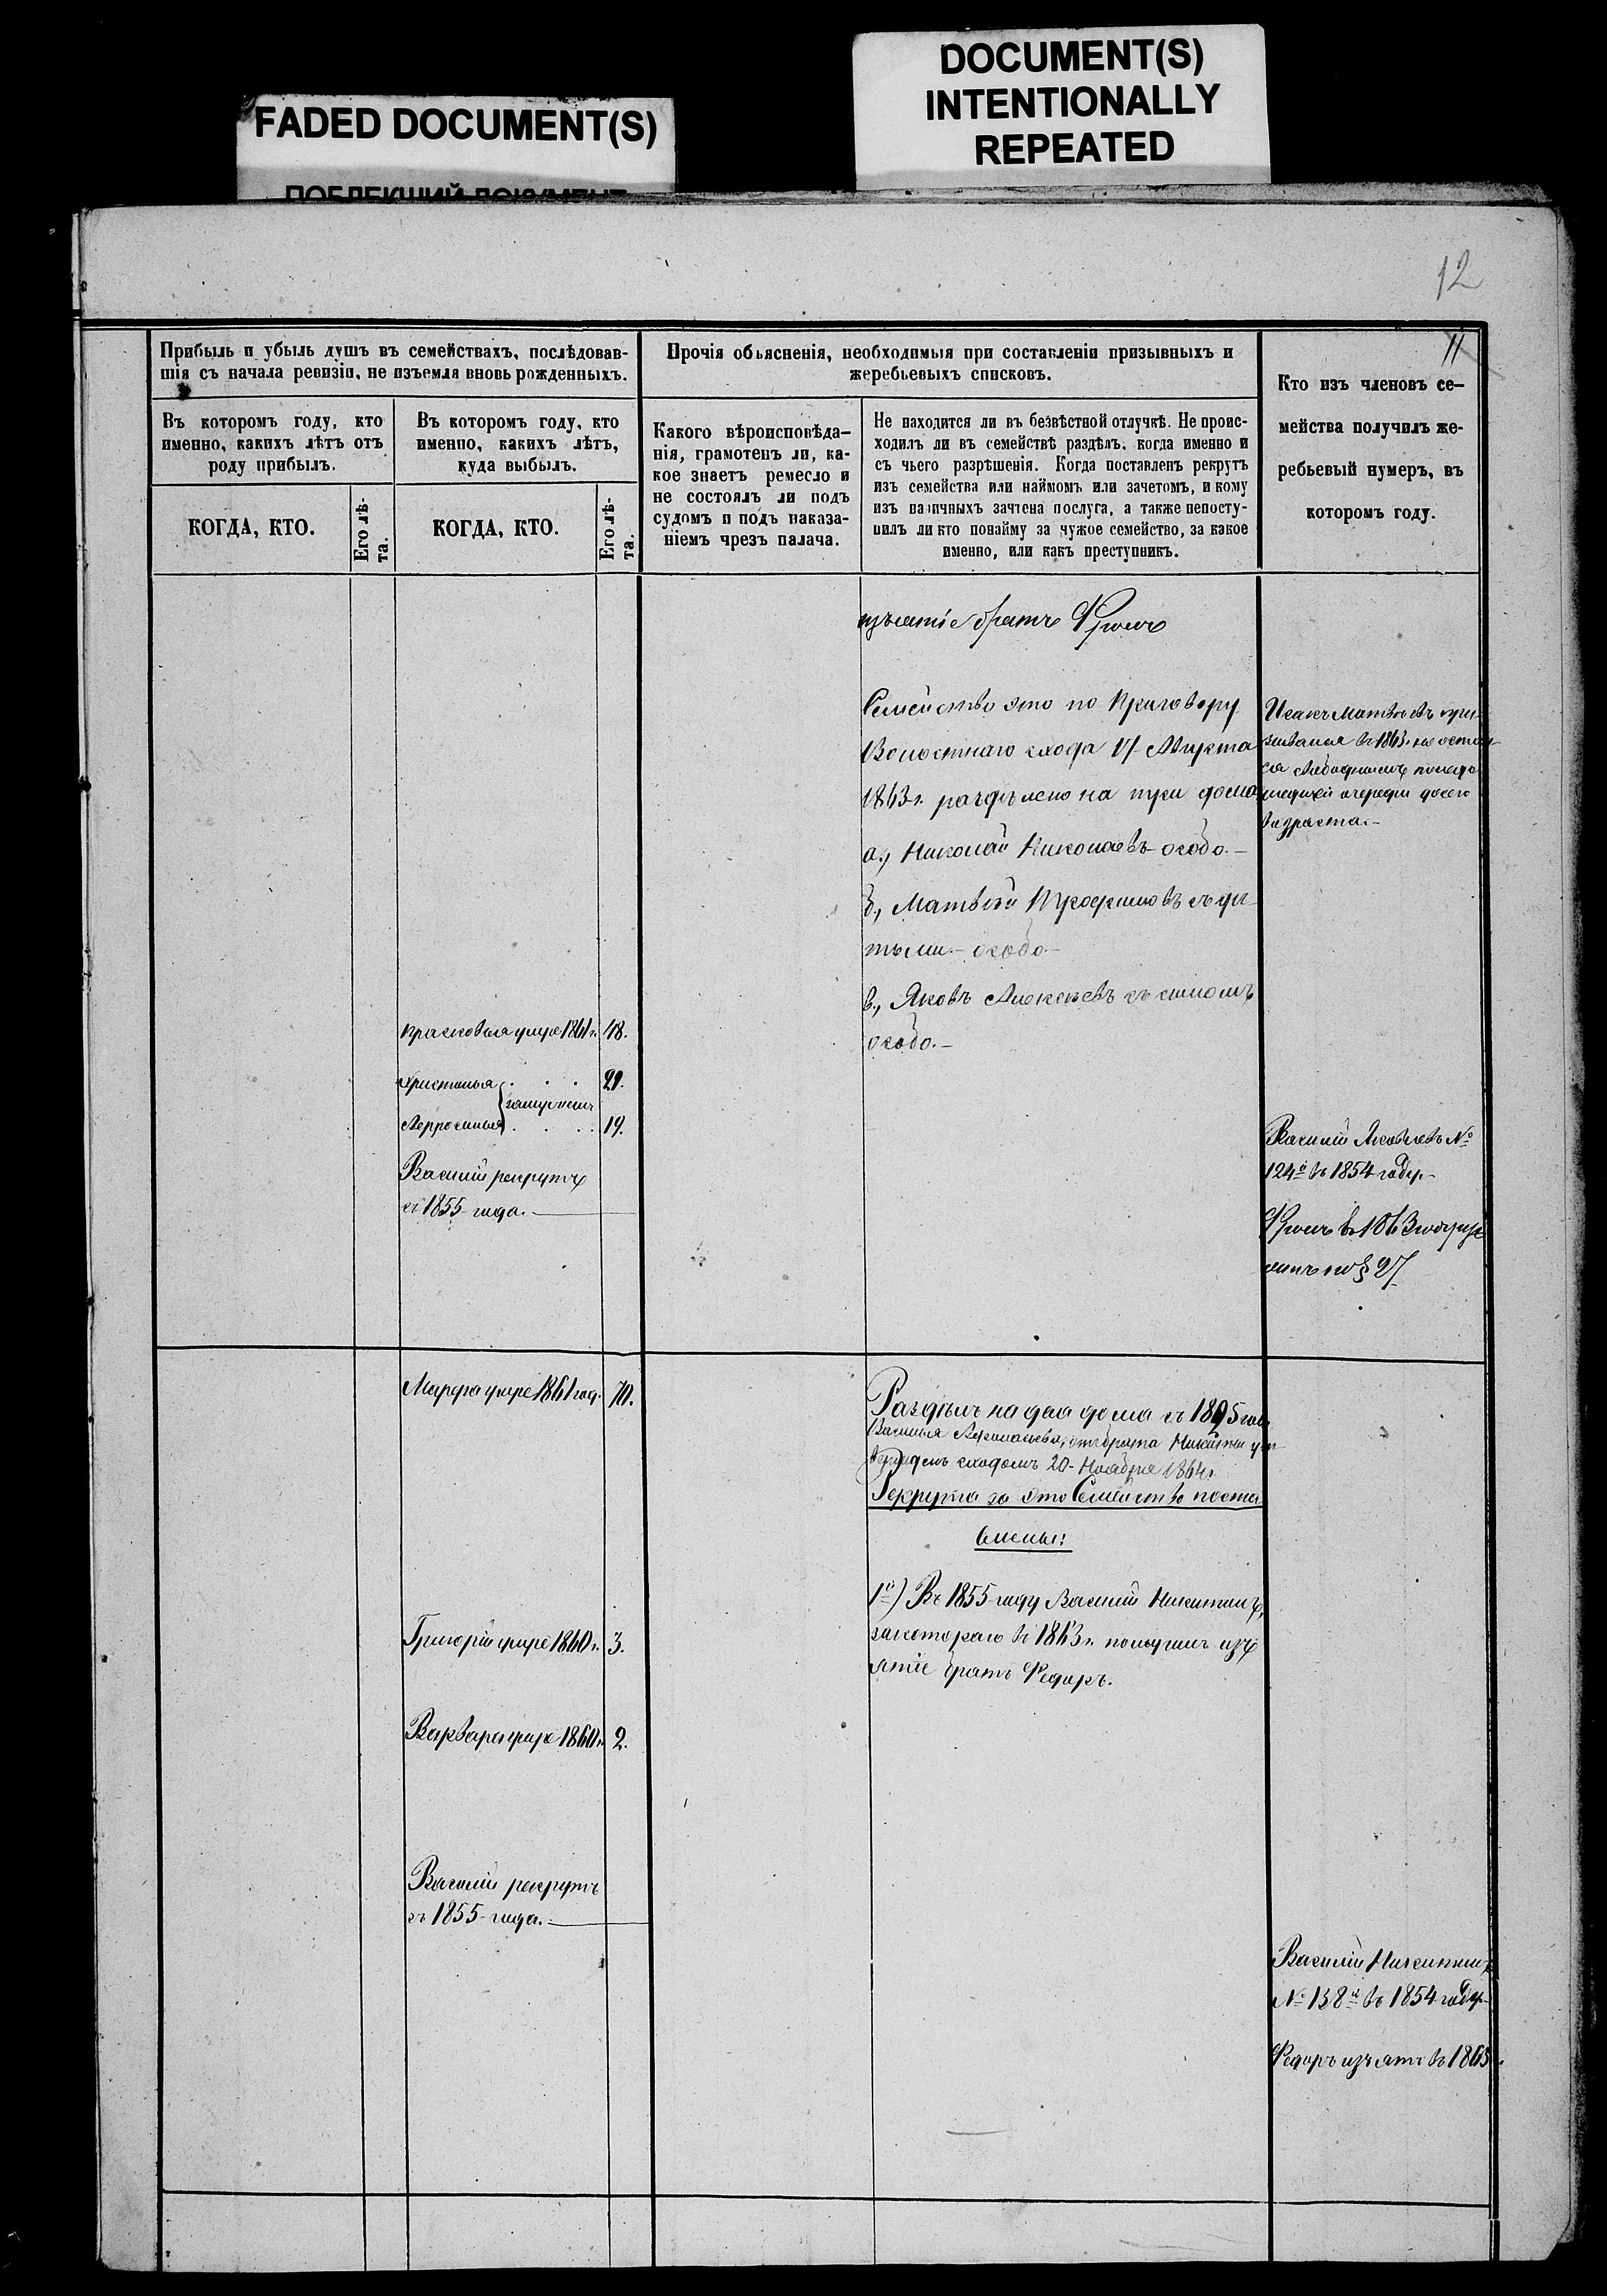 FADED DOCUMENT(S)
DOCUMENT(S)
INTENTIONALLY
REPEATED
12
11
Прибыль и убыль душъ въ семействахъ, послѣдовав-
шія съ начала ревизіи, не изъемля вновь рожденныхъ.
Въ которомъ году, кто
именно, какихъ лѣтъ отъ
роду прибылъ.
КОГДА, КТО.
Его лѣ-
та.
Въ которомъ году, кто
именно, какихъ лѣтъ,
куда выбылъ.
КОГДА, КТО.
Его лѣ-
та.
Прочія объясненія, необходимыя при составленіи призывныхъ и
жеребьевыхъ списковъ.
Какого вѣроисповѣда-
нія, грамотенъ ли, ка-
кое знаетъ ремесло и
не состоялъ ли подъ
судомъ и подъ наказа-
ніемъ чрезъ палача.
Не находится ли въ безвѣстной отлучкѣ. Не проис-
ходилъ ли въ семействѣ раздѣлъ, когда именно и
съ чьего разрѣшенія. Когда поставленъ рекрутъ
изъ семейства или наймомъ или зачетомъ, и кому
изъ наличныхъ зачтена послуга, а также непосту-
пилъ ли кто понайму за чужое семейство, за какое
именно, или какъ преступникъ.
Кто изъ членовъ се-
мейства получилъ же-
ребьевый нумеръ, въ
которомъ году.
изъятіе братъ
Семейство это по Приговору
Волостнаго схода 17 Августа
1863 г. раздѣлено на три дома
а., Николай Николаевъ особо.-
б., Матвѣй Прокофьевъ съ дѣ
тьми - особо -
в., Яковъ Алексѣевъ съ сыномъ
особо. -
Исакъ Матвѣевъ при-
зывался въ 1863 г. но остал
ся свободнымъ
очереди
возраста.-
Прасковья умре 1861 г. 48.
Христинья . . . 21.
замужемъ
. . . 19.
Василій рекрутъ
съ 1855 года.
Василій Яковлевъ №
124й въ 1854 году-
въ 1863 году
по § 27
Марфа умре 1861 год. 70.
Григорій умре 1860 г. 3.
Варвара умре 1860 г. 2.
Василій рекрутъ
съ 1855 года.
Раздѣлъ на два дома съ 18 5 года
Василья отъ брата Никиты ут
вержденъ сходомъ 20 Ноября 1864 г.
Рекрута за это Семейство постав
влены:
1й) Въ 1855 году Василій Никитинъ,
за котораго въ 1863 г. получилъ изъ
ятіе братъ Федоръ.
Василій Никитинъ
№ 138й въ 1854 году-
Федоръ изъятъ въ 1863